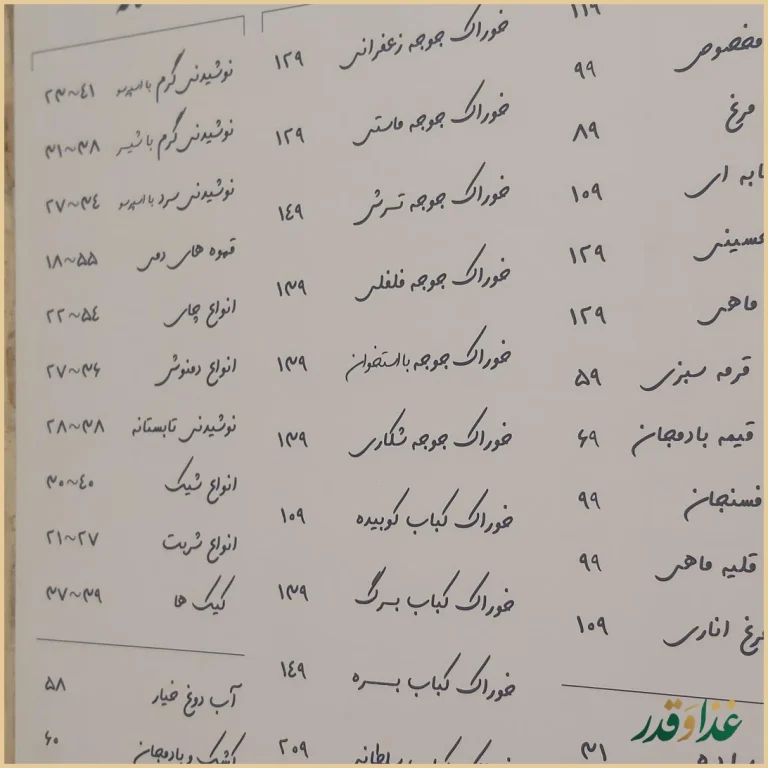 ۱۱۹
مخصوص ۹۹
مرغ ۸۹
۱۰۹
۱۲۹
ماهی ۱۲۹
قرمه سبزی ۵۹
قیمه بادمجان ۶۹
فسنجان ۹۹
قلیه ماهی ۹۹
مرغ اناری ۱۰۹
۳۱
خوراک جوجه زعفرانی ۱۲۹
خوراک جوجه ماستی ۱۲۹
خوراک جوجه ترش ۱۴۹
خوراک جوجه فلفلی ۱۳۹
خوراک جوجه بااستخوان ۱۳۹
خوراک جوجه شکاری ۱۳۹
خوراک کباب کوبیده ۱۰۹
خوراک کباب برگ ۱۳۹
خوراک کباب بره ۱۴۹
۲۰۹
نوشیدنی گرم با اسپرسو ۲۳~۴۱
نوشیدنی گرم با شیر ۳۱~۳۸
نوشیدنی سرد با اسپرسو ۲۷~۳۴
قهوه های دمی ۱۸~۵۵
انواع چای ۲۲~۵۴
انواع دمنوش ۲۷~۳۶
نوشیدنی تابستانه ۲۸~۳۸
انواع شیک ۳۰~۴۰
انواع شربت ۲۱~۲۷
کیک ها ۳۷~۳۹
آب دوغ خیار ۵۸
کشک و بادمجان ۶۰
غذا و قدر